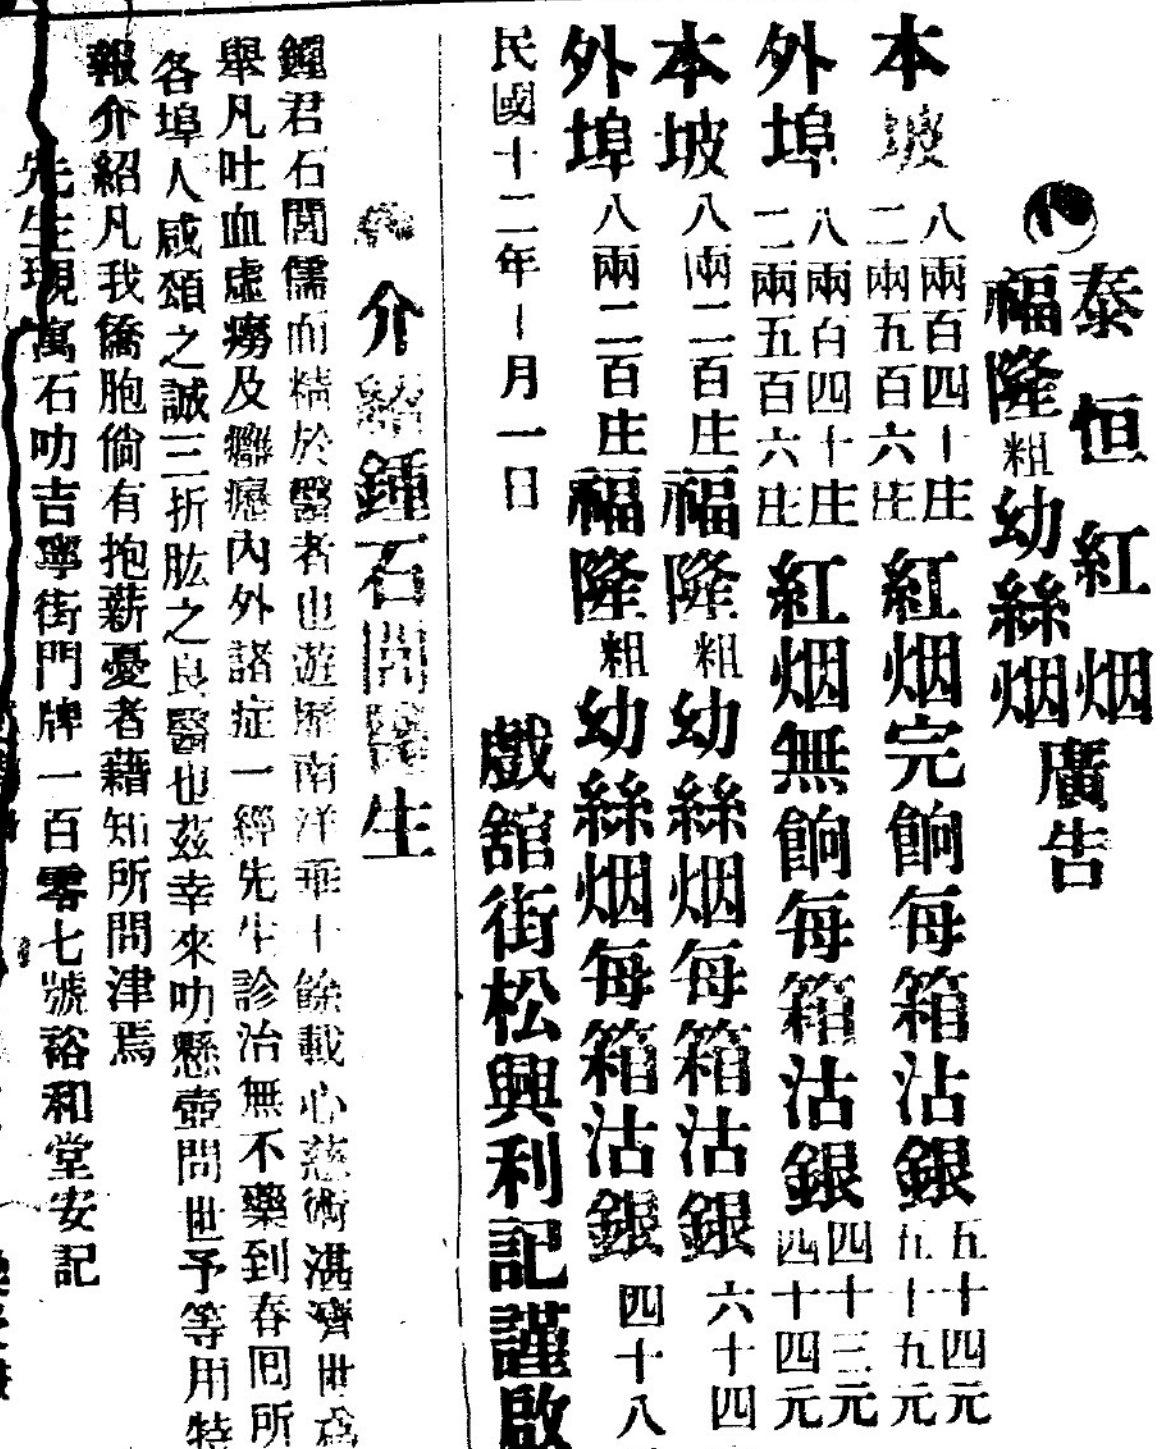 泰恒紅烟
福隆粗幼絲烟
廣告
本坡 八兩百四十庄 二兩五百六庄 紅烟完餉每箱沽銀 五十四元 五十九元
外埠 八兩百四十庄 二兩五百六庄 紅烟無餉每箱沽銀 四十三元 四十四元
本坡八兩二百庄福隆粗幼絲烟每箱沽銀六十四
外埠八兩二百庄福隆粗幼絲烟每箱沽銀四十八
民國十二年一月一日
戲舘街松興利記謹啟
介紹鍾石閭先生
鍾君石閭儒而精於醫者也遊歷南洋垂十餘載心慈術湛濟世為
舉凡吐血虛癆及癰瘋內外諸症一經先生診治無不藥到春囘所
各埠人咸頌之誠三折肱之良醫也茲幸來叻懸壺問世予等用特
報介紹凡我僑胞倘有抱薪憂者藉知所問津焉
先生現寓石叻吉寧街門牌一百零七號裕和堂安記